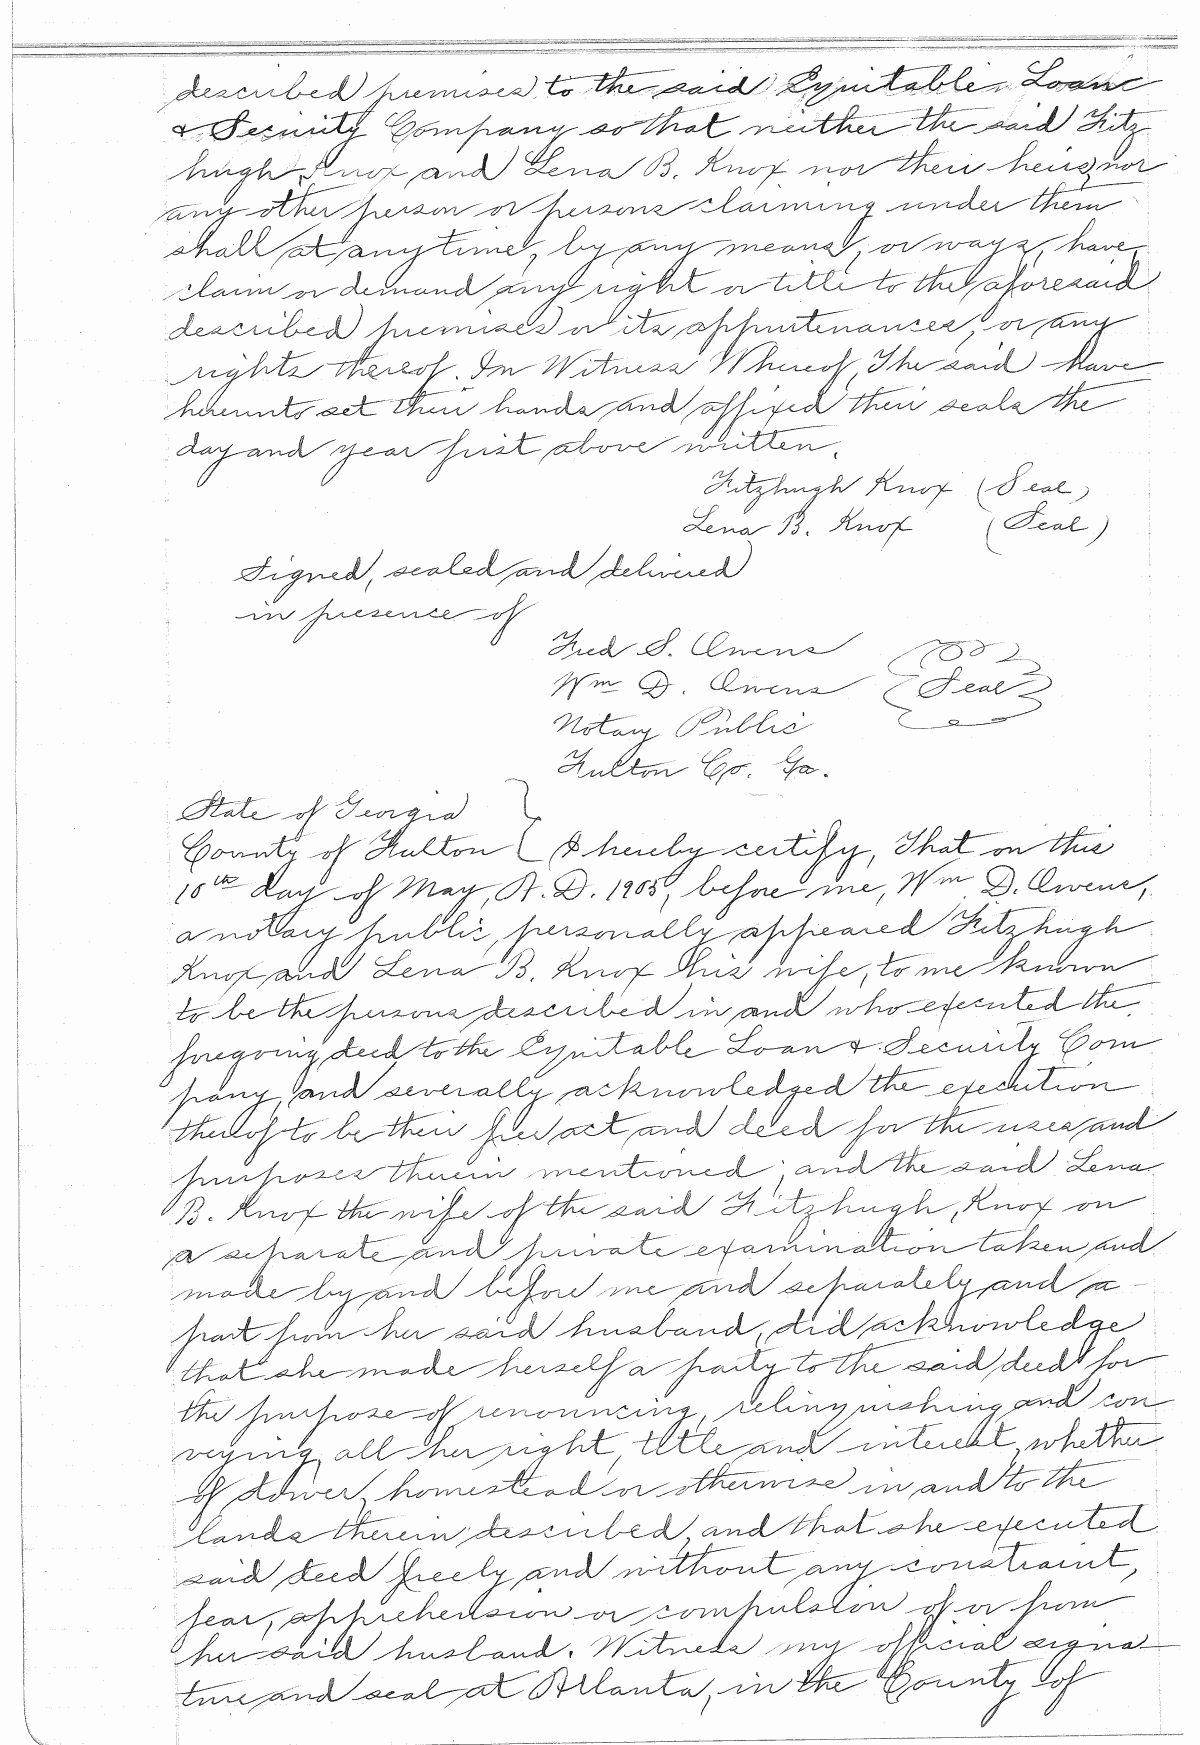 described premises to the said Equitable Loan
& Security Company so that neither the said Fitz
hugh Knox and Lena B. Knox nor their heirs, nor
any other person or persons claiming under them
shall at any time, by any means, or ways, have,
claim or demand any right or title to the aforesaid
described premises or its appurtenances, or any
rights thereof. In Witness Whereof, The said have
hereunto set their hands and affixed their seals the
day and year first above written.
Fitzhugh Knox (Seal)
Lena B. Knox (Seal)
Signed, sealed and delivered
in presence of
Fred S. Owens
Wm D. Owens (Seal)
Notary Public
Fulton Co. Ga.
State of Georgia
County of Fulton } I hereby certify, That on this
10th day of May, A. D. 1905, before me, Wm D. Owens,
a notary public, personally appeared Fitzhugh
Knox and Lena B. Knox his wife, to me known
to be the persons described in and who executed the
foregoing deed to the Equitable Loan & Security Com
pany, and severally acknowledged the execution
thereof to be their free act and deed for the uses and
purposes therein mentioned; and the said Lena
B. Knox the wife of the said Fitzhugh, Knox on
a separate and private examination taken and
made by and before me and separately and a
part from her said husband, did acknowledge
that she made herself a party to the said deed for
the purpose of renouncing, relinquishing and con
veying all her right, title and interest, whether
of dower, homestead or otherwise in and to the
lands therein described, and that she executed
said deed freely and without any constraint,
fear, apprehension or compulsion of or from
her said husband. Witness my official signa
ture and seal at Atlanta, in the County of